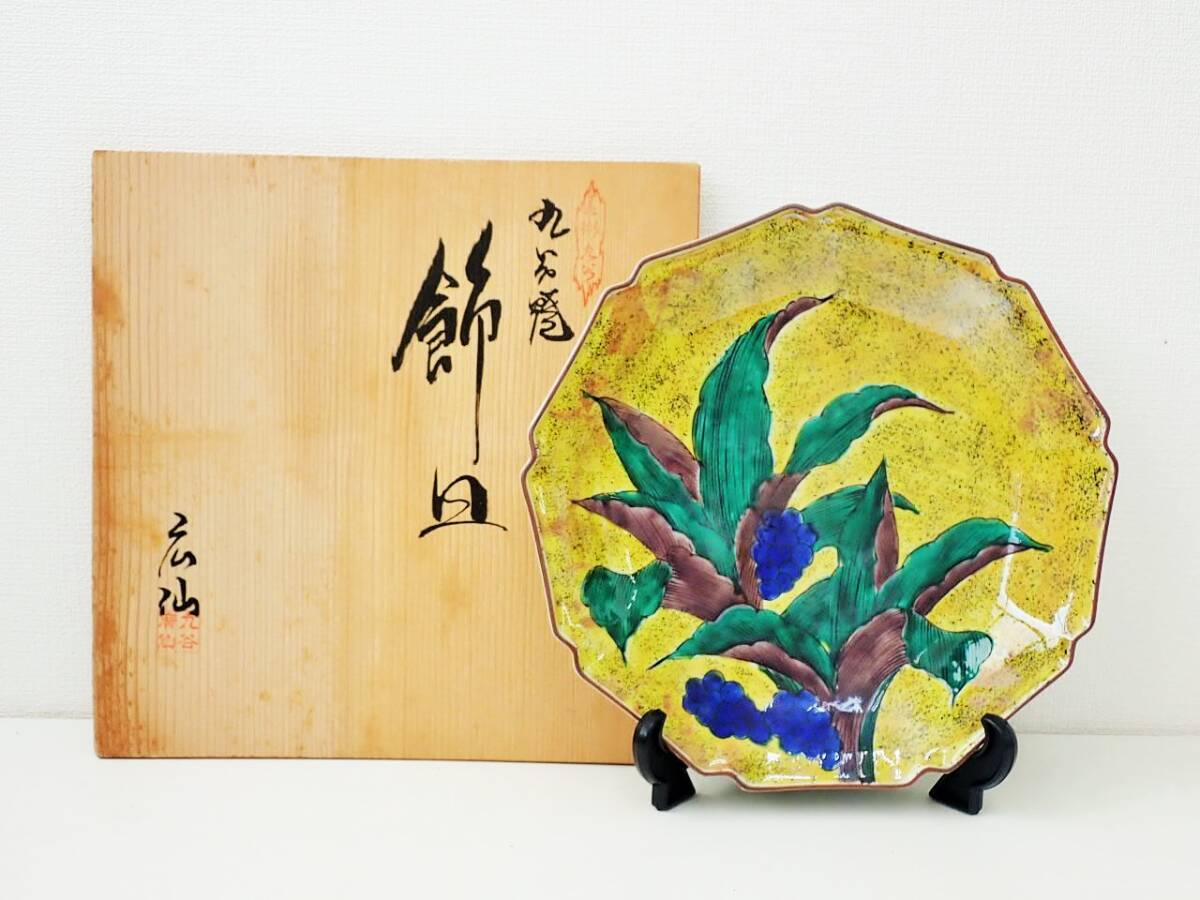 九谷焼
飾皿
広仙
九谷
廣仙